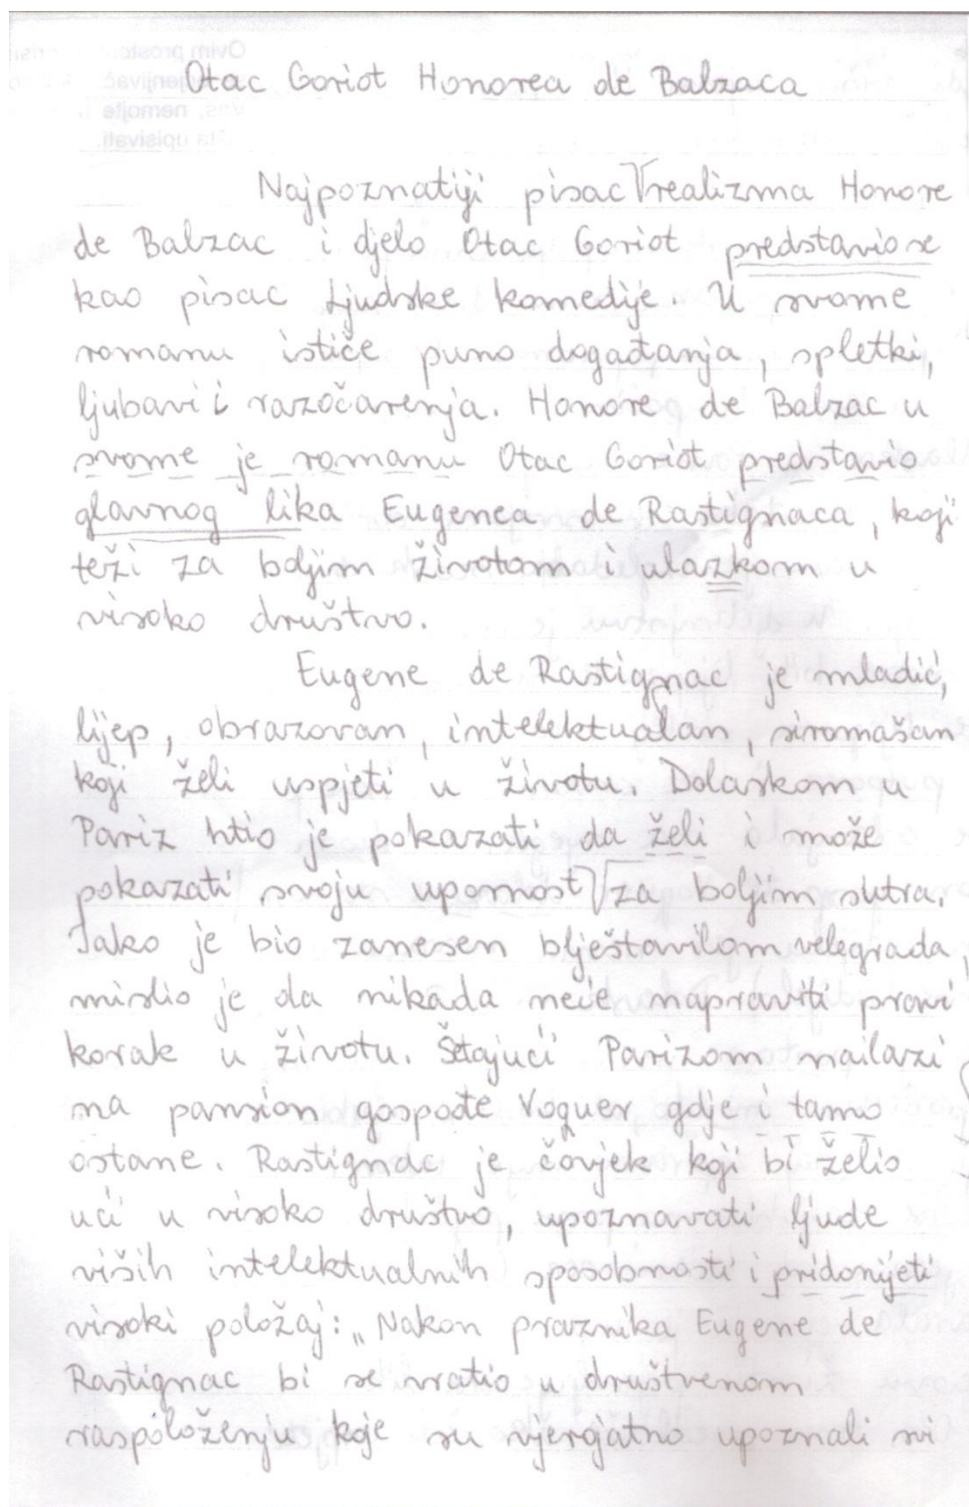 Otac Goriot Honorea de Balzaca
Najpoznatiji pisac realizma Honore
de Balzac i djelo Otac Goriot predstavio se
kao pisac Ljudske komedije. U svome
romanu ističe puno događanja, spletki,
ljubavi i razočarenja. Honore de Balzac u
svome je romanu Otac Goriot predstavio
glavnog lika Eugenea de Rastignaca, koji
teži za boljim životom i ulazkom u
visoko društvo.
Eugene de Rastignac je mladić,
lijep, obrazovan, intelektualan, siromašan
koji želi uspjeti u životu. Dolaskom u
Pariz htio je pokazati da želi i može
pokazati svoju upornost za boljim sutra.
Tako je bio zanesen blještavilom velegrada,
mislio je da nikada neće napraviti pravi
korak u životu. Šetajući Parizom nailazi
na pansion gospođe Voquer gdje i tamo
ostane. Rastignac je čovjek koji bi želio
ući u visoko društvo, upoznavati ljude
viših intelektualnih sposobnosti i pridonijeti
visoki položaj: „Nakon praznika Eugene de
Rastignac bi se vratio u društvenom
raspoloženju koje su vjerojatno upoznali svi